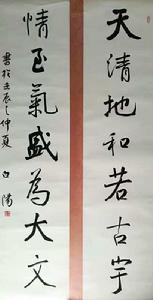 天清地和若古宇
情至氣盛為大文
書於壬辰之仲夏
白陽